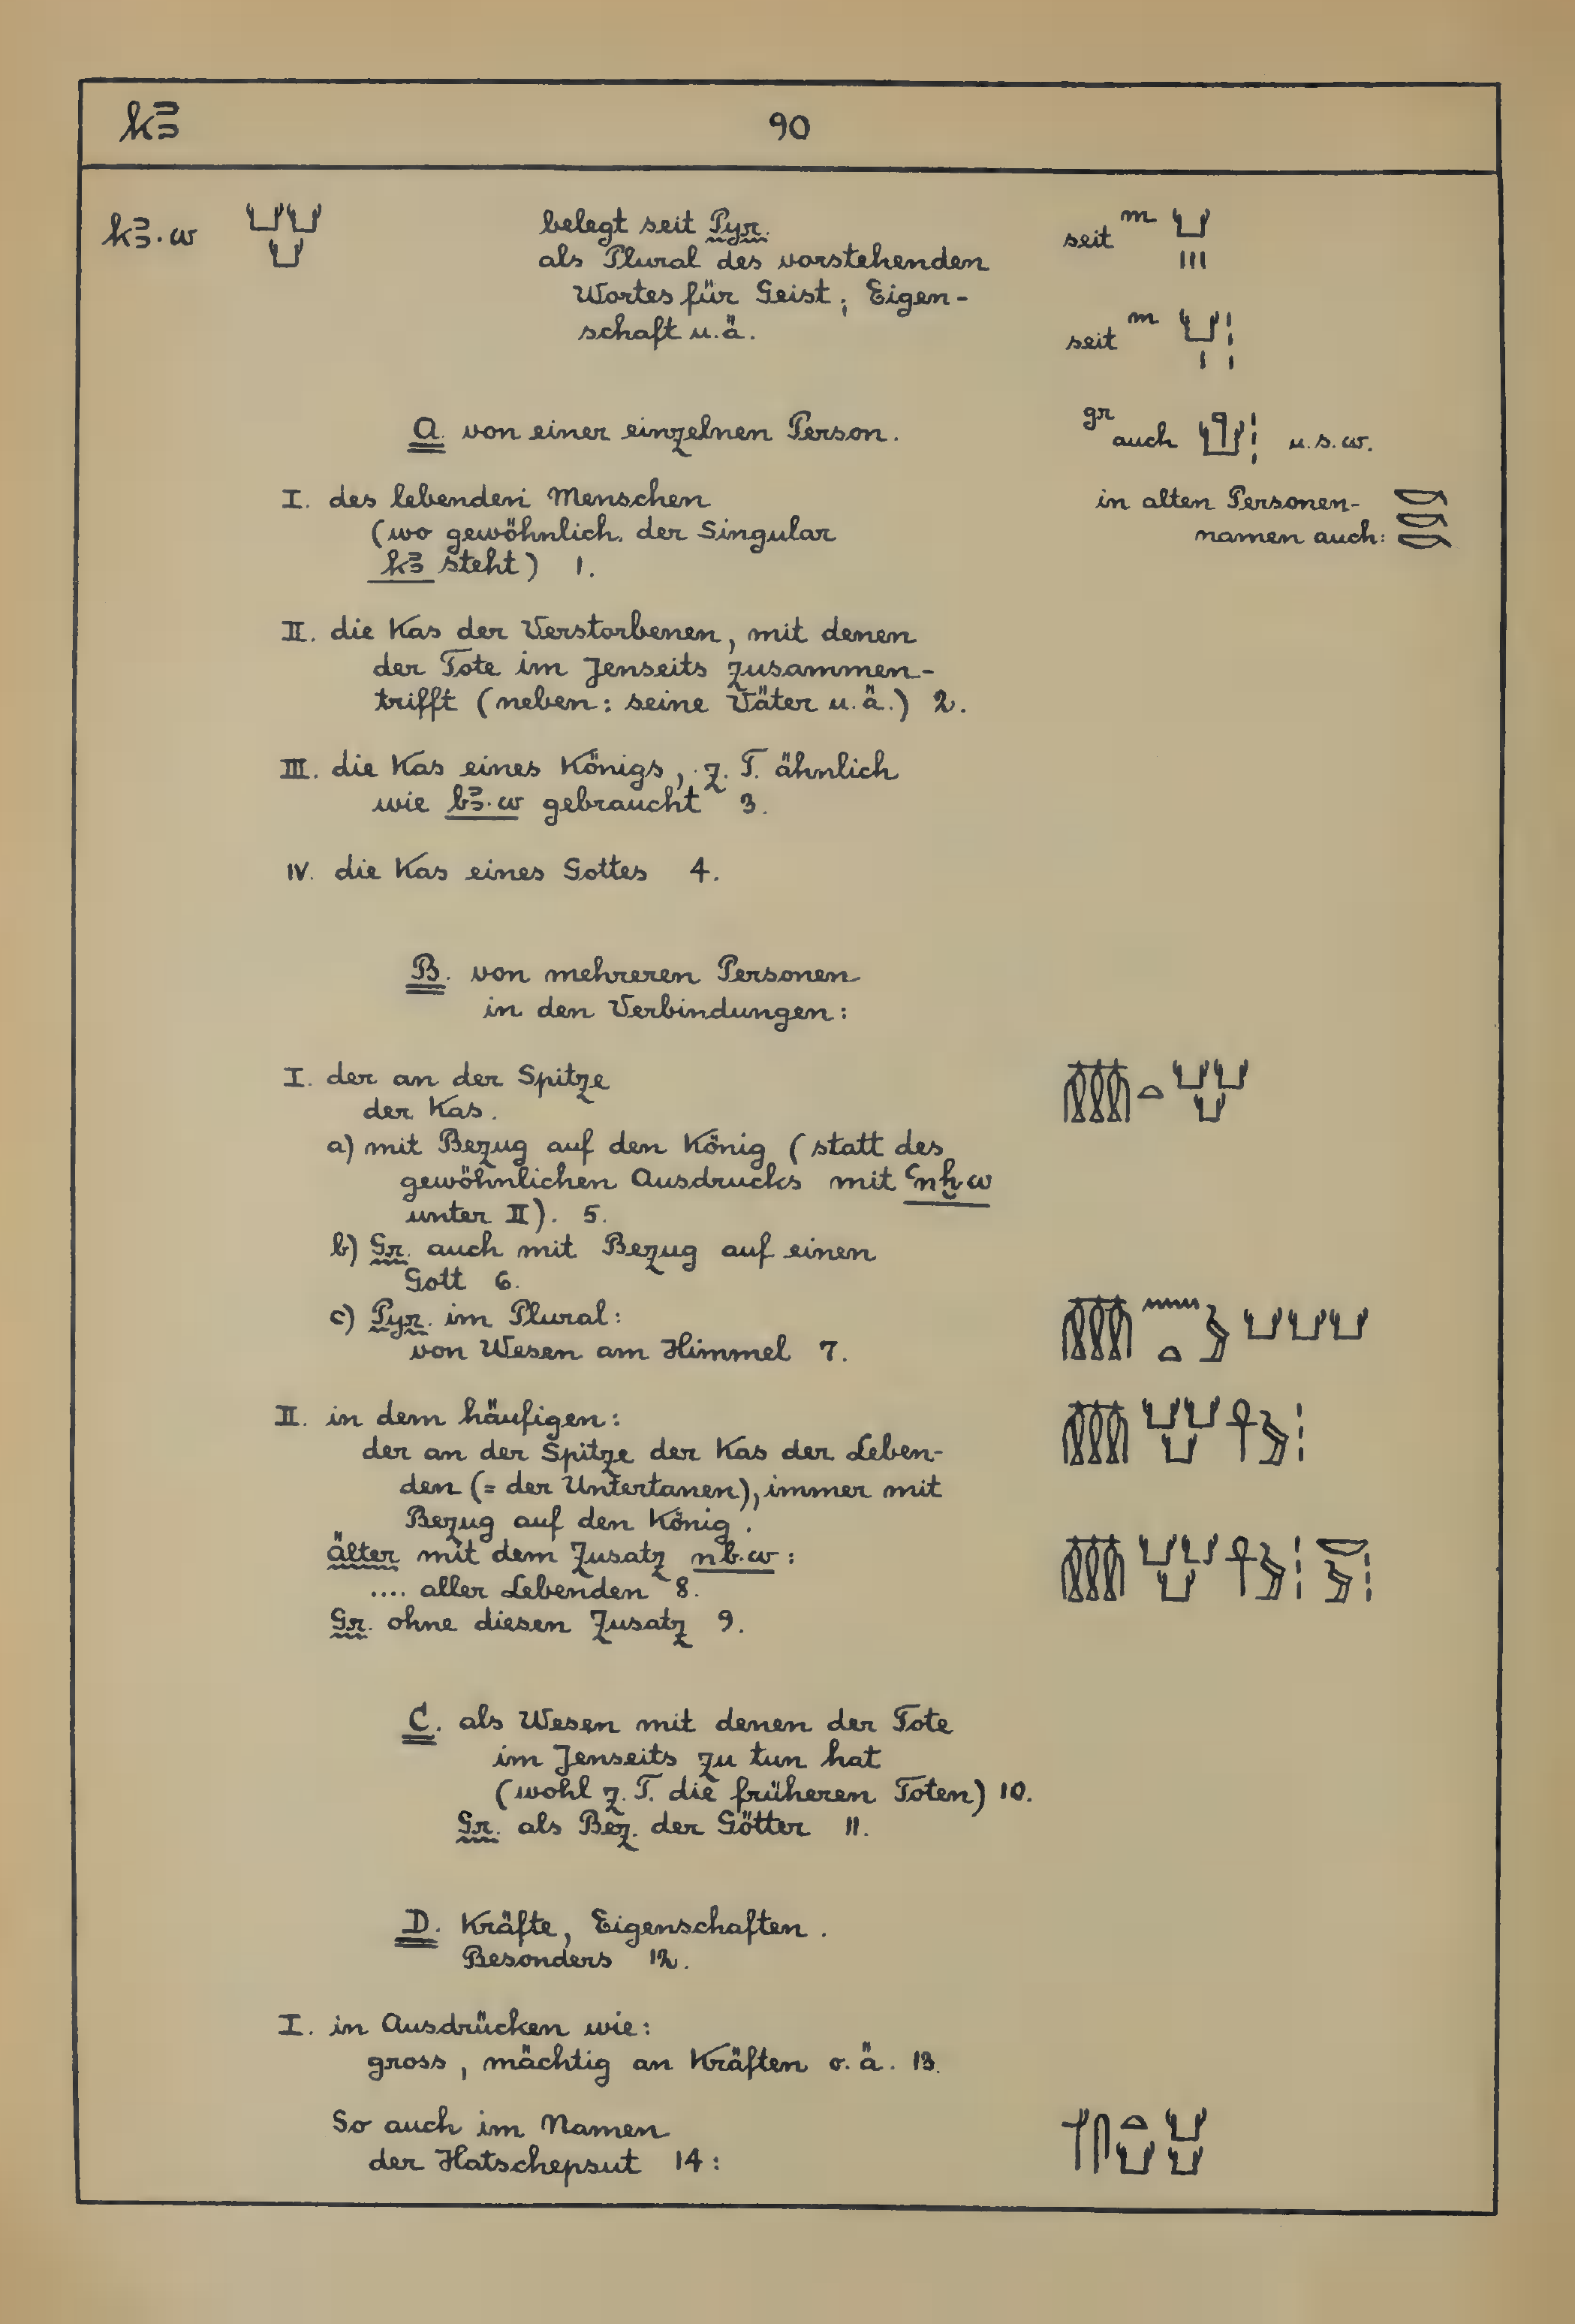 kꜣ 90
kꜣ·w 𓂓𓂓𓂓 belegt seit Pyr.
als Plural des vorstehenden
Wortes für Geist; Eigen-
schaft u. ä.
seit m 𓂓 III
seit m 𓂓
gr auch u.s.w.
in alten Personen-
namen auch: 𓎡𓎡𓎡
A. von einer einzelnen Person.
I. des lebenden Menschen
(wo gewöhnlich der Singular
kꜣ steht) 1.
II. die Kas der Verstorbenen, mit denen
der Tote im Jenseits zusammen-
trifft (neben: seine Väter u. ä.) 2.
III. die Kas eines Königs, z. T. ähnlich
wie bꜣ·w gebraucht 3.
IV. die Kas eines Gottes 4.
B. von mehreren Personen
in den Verbindungen:
I. der an der Spitze 𓏃𓏏𓂓𓂓𓂓
der Kas.
a) mit Bezug auf den König (statt des
gewöhnlichen Ausdrucks mit ꜥnḫ·w
unter II). 5.
b) Gr. auch mit Bezug auf einen
Gott 6.
c) Pyr. im Plural:
von Wesen am Himmel 7.
II. in dem häufigen:
der an der Spitze der Kas der Leben-
den (= der Untertanen), immer mit
Bezug auf den König.
älter mit dem Zusatz nb·w:
.... aller Lebenden 8.
Gr. ohne diesen Zusatz 9.
C. als Wesen mit denen der Tote
im Jenseits zu tun hat
(wohl z. T. die früheren Toten) 10.
Gr. als Bez. der Götter 11.
D. Kräfte, Eigenschaften.
Besonders 12.
I. in Ausdrücken wie:
gross, mächtig an Kräften o. ä. 13.
So auch im Namen
der Hatschepsut 14: 𓄊𓋴𓏏𓂓𓂓𓂓